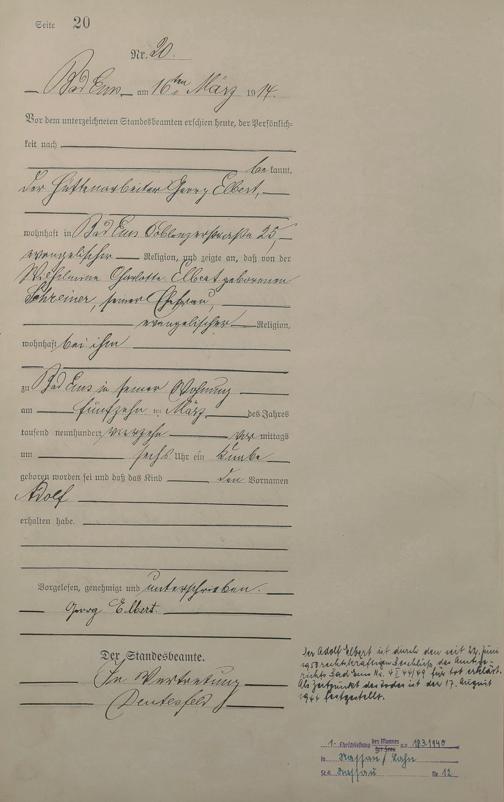 Seite 20
Nr. 20.
Bad Ems am 16ten März 1914.
Vor dem unterzeichneten Standesbeamten erschien heute, der Persönlich-
keit nach
bekannt,
der Hüttenarbeiter Georg Elbert,
wohnhaft in Bad Ems Coblenzerstraße 25,
evangelischer Religion, und zeigte an, daß von der
Wilhelmine Charlotte Elbert geborenen
Schreiner, seiner Ehefrau,
evangelischer Religion,
wohnhaft bei ihm
zu Bad Ems in seiner Wohnung
am fünfzehn ten März des Jahres
tausend neunhundert vierzehn vor mittags
um sechs Uhr ein Knabe
geboren worden sei und daß das Kind den Vornamen
Adolf
erhalten habe.
Vorgelesen, genehmigt und unterschrieben.
Georg Elbert.
Der Standesbeamte.
In Vertretung
Der Adolf Elbert ist durch den seit 22. Juni
1950 rechtskräftigen Beschluß des Amtsge-
richts Bad Ems Nr. 4 II 44/49 für tot erklärt.
Als Zeitpunkt des Todes ist der 17. August
1944 festgestellt.
1. Eheschließung des Mannes am 18.3.1940
in Nassau / Lahn
St.A. Nassau Nr. 12